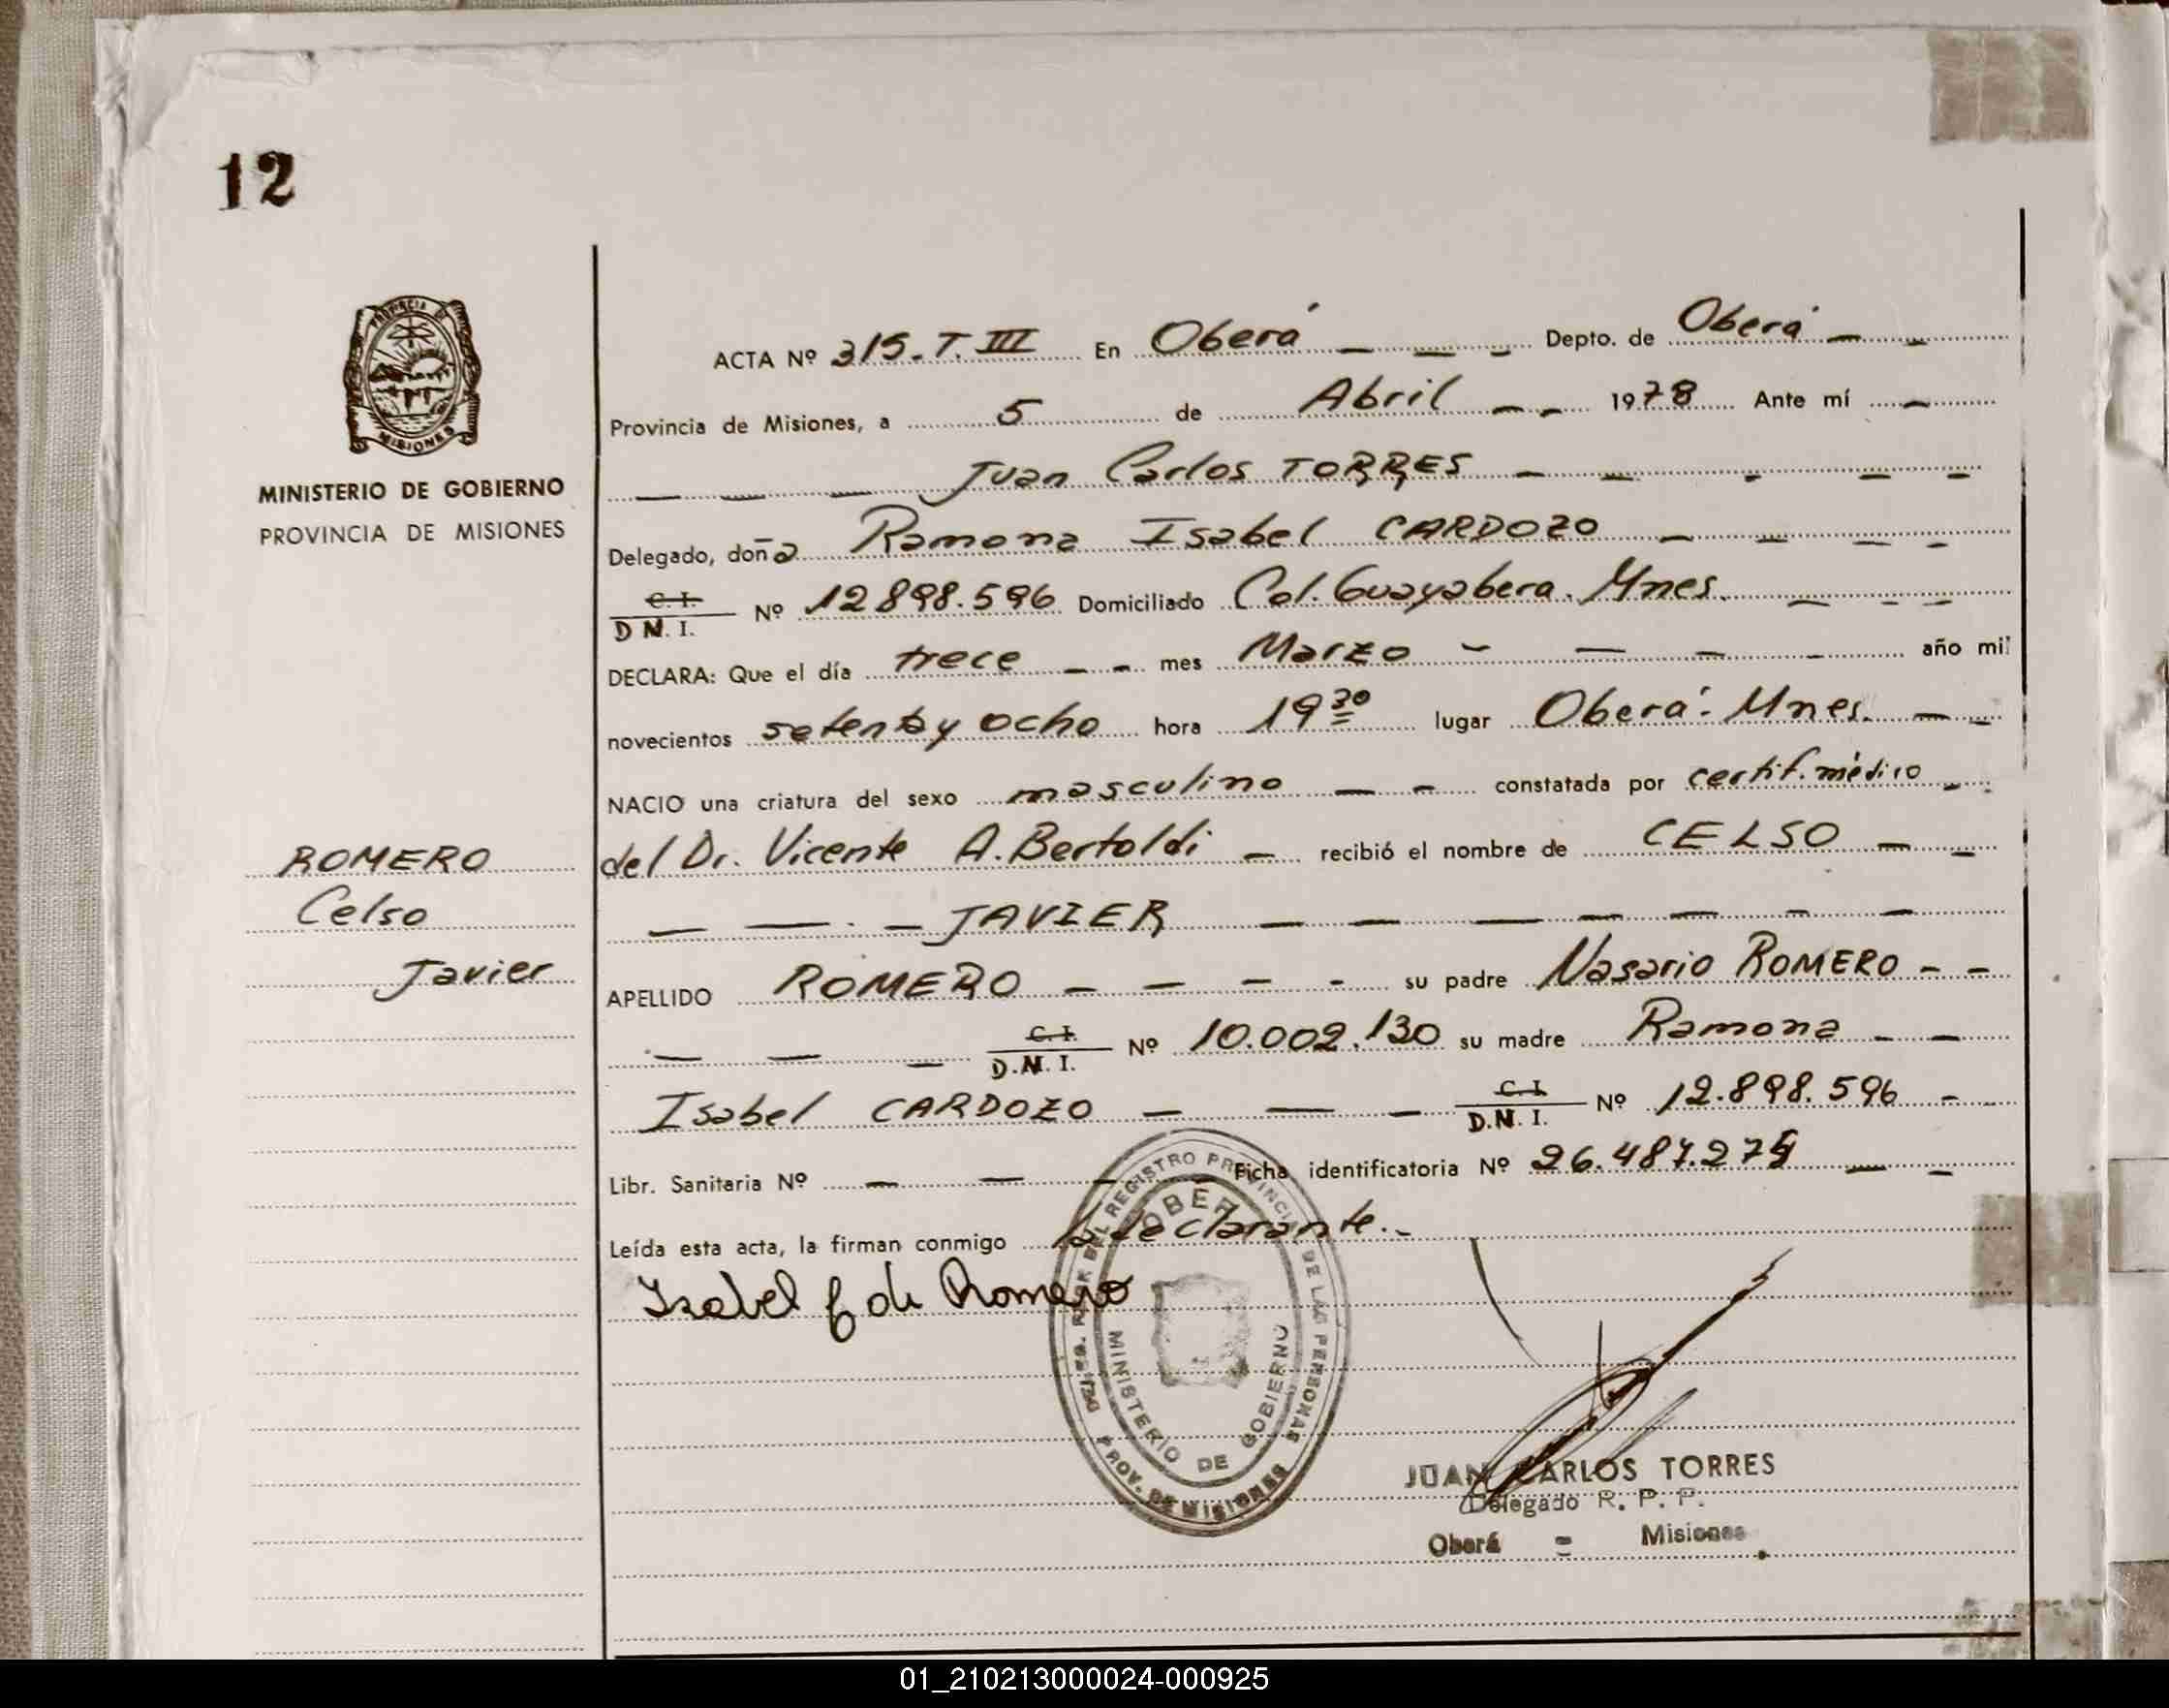 12
PROVINCIA DE
MISIONES
MINISTERIO DE GOBIERNO
PROVINCIA DE MISIONES
ROMERO
Celso
Javier
ACTA Nº 315. T. III En Oberá Depto. de Oberá
Provincia de Misiones, a 5 de Abril 1978 Ante mí
Juan Carlos TORRES
Delegado, doña Ramona Isabel CARDOZO
C. I.
D N. I. Nº 12898.596 Domiciliado Col. Guayabera. Mnes.
DECLARA: Que el día trece mes Marzo año mil
novecientos setenta y ocho hora 19 30 lugar Oberá. Mnes.
NACIO una criatura del sexo masculino constatada por certif. médico
del Dr. Vicente A. Bertoldi recibió el nombre de CELSO
JAVIER
APELLIDO ROMERO su padre Nasario ROMERO
C. I.
D. N. I. Nº 10.002.130 su madre Ramona
Isabel CARDOZO C. I. D. N. I. Nº 12.898.596
Libr. Sanitaria Nº Ficha identificatoria Nº
Leída esta acta, la firman conmigo la declarante.
Isabel C de Romero
DEL REGISTRO PROVINCIAL DE LAS PERSONAS
PROV. DE MISIONES
OBERA
MINISTERIO DE GOBIERNO
JUAN CARLOS TORRES
Delegado R. P. P.
Oberá = Misiones
01_210213000024-000925